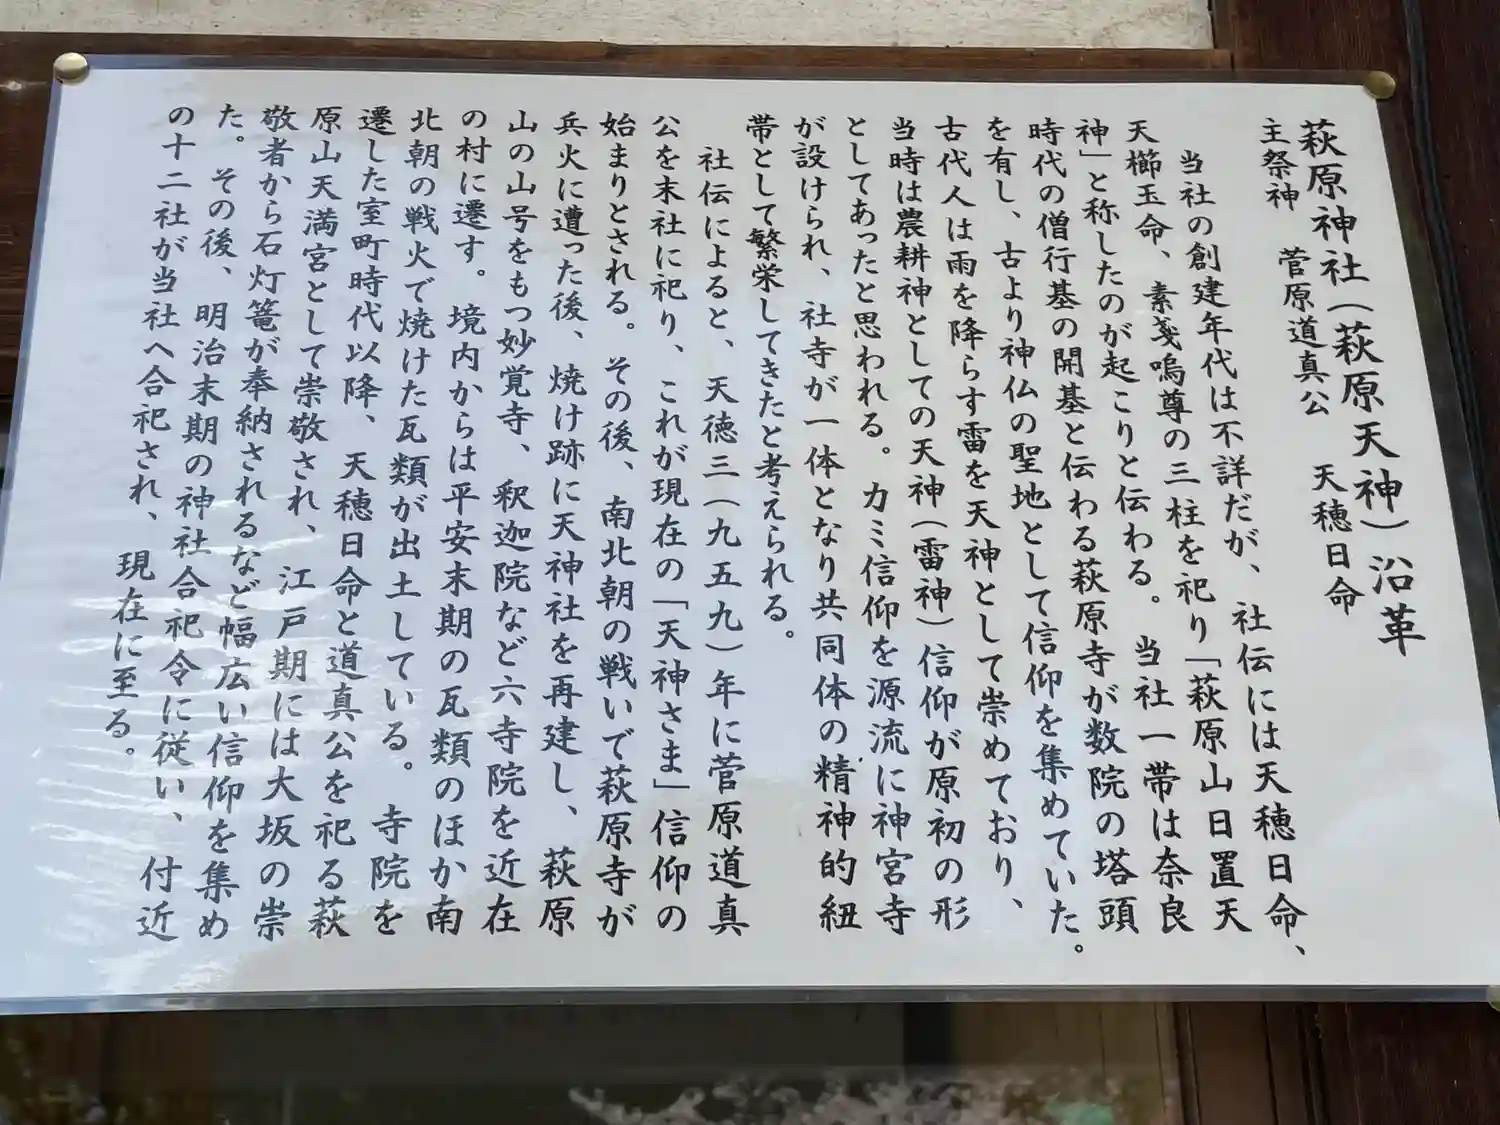 萩原神社（萩原天神）沿革
主祭神　菅原道真公　天穂日命
当社の創建年代は不詳だが、社伝には天穂日命、
天櫛玉命、素戔嗚尊の三柱を祀り「萩原山日置天
神」と称したのが起こりと伝わる。当社一帯は奈良
時代の僧行基の開基と伝わる萩原寺が数院の塔頭
を有し、古より神仏の聖地として信仰を集めていた。
古代人は雨を降らす雷を天神として崇めており、
当時は農耕神としての天神（雷神）信仰が原初の形
としてあったと思われる。カミ信仰を源流に神宮寺
が設けられ、社寺が一体となり共同体の精神的紐
帯として繁栄してきたと考えられる。
社伝によると、天徳三（九五九）年に菅原道真
公を末社に祀り、これが現在の「天神さま」信仰の
始まりとされる。その後、南北朝の戦いで萩原寺が
兵火に遭った後、焼け跡に天神社を再建し、萩原
山の山号をもつ妙覚寺、釈迦院など六寺院を近在
の村に遷す。境内からは平安末期の瓦類のほか南
北朝の戦火で焼けた瓦類が出土している。寺院を
遷した室町時代以降、天穂日命と道真公を祀る萩
原山天満宮として崇敬され、江戸期には大坂の崇
敬者から石灯篭が奉納されるなど幅広い信仰を集め
た。その後、明治末期の神社合祀令に従い、付近
の十二社が当社へ合祀され、現在に至る。